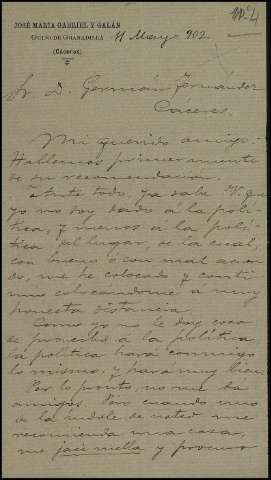 Nº 4
JOSÉ MARÍA GABRIEL Y GALÁN
GUIJO DE GRANADILLA
(Cáceres)
11 Mayo 902
Sr. D. Germán Fernández
Cáceres.
Mi querido amigo:
Hablemos primeramente
de su recomendación.
Ante todo ya sabe V. que
yo no soy dado á la polí-
tica, y menos á la polí-
tica del lugar, de la cual,
con bueno o con mal acuer-
do, me he colocado y conti-
núo colocándome á muy
honesta distancia.
Como yo no le doy cosa
de provecho á la política,
la política hará conmigo
lo mismo, y hará muy bien.
Por lo pronto, no me da
amigos. Pero cuando uno
de la índole de usted me
recomienda una cosa,
me y procuro